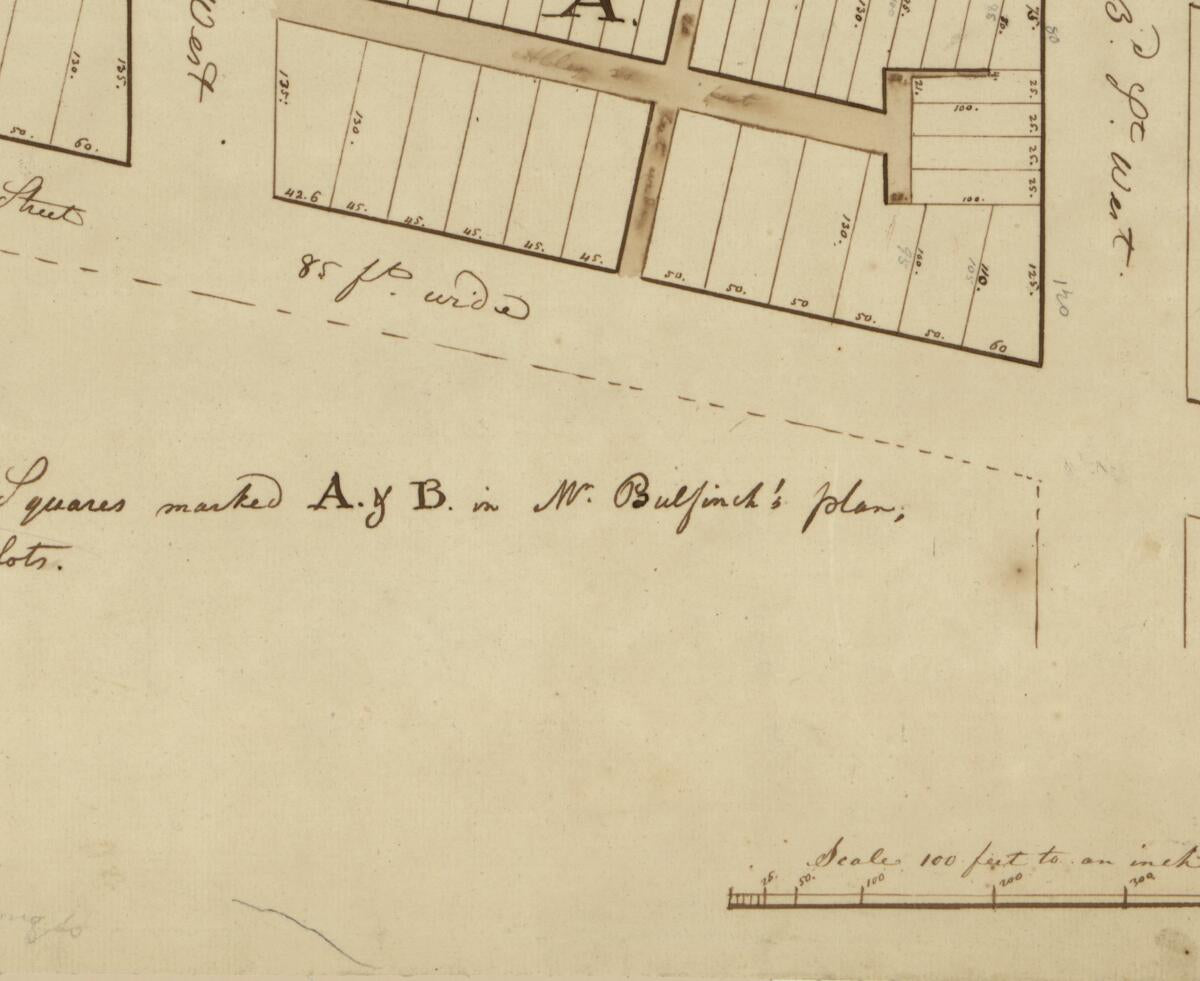 A.
West
130.
125.
50.
60.
125.
130.
42.6
45.
45.
45.
45.
45.
130.
25.
80.
75.
80
21.
100.
25.
25.
25.
25.
100.
B. St. West.
Street
85 ft. wide
50.
50.
50
50.
50.
60
130.
95
100.
105
110.
125.
140
Squares marked A. & B. in Mr. Bulfinch's plan;
lots.
Scale 100 feet to an inch
25.
50.
100
200
300